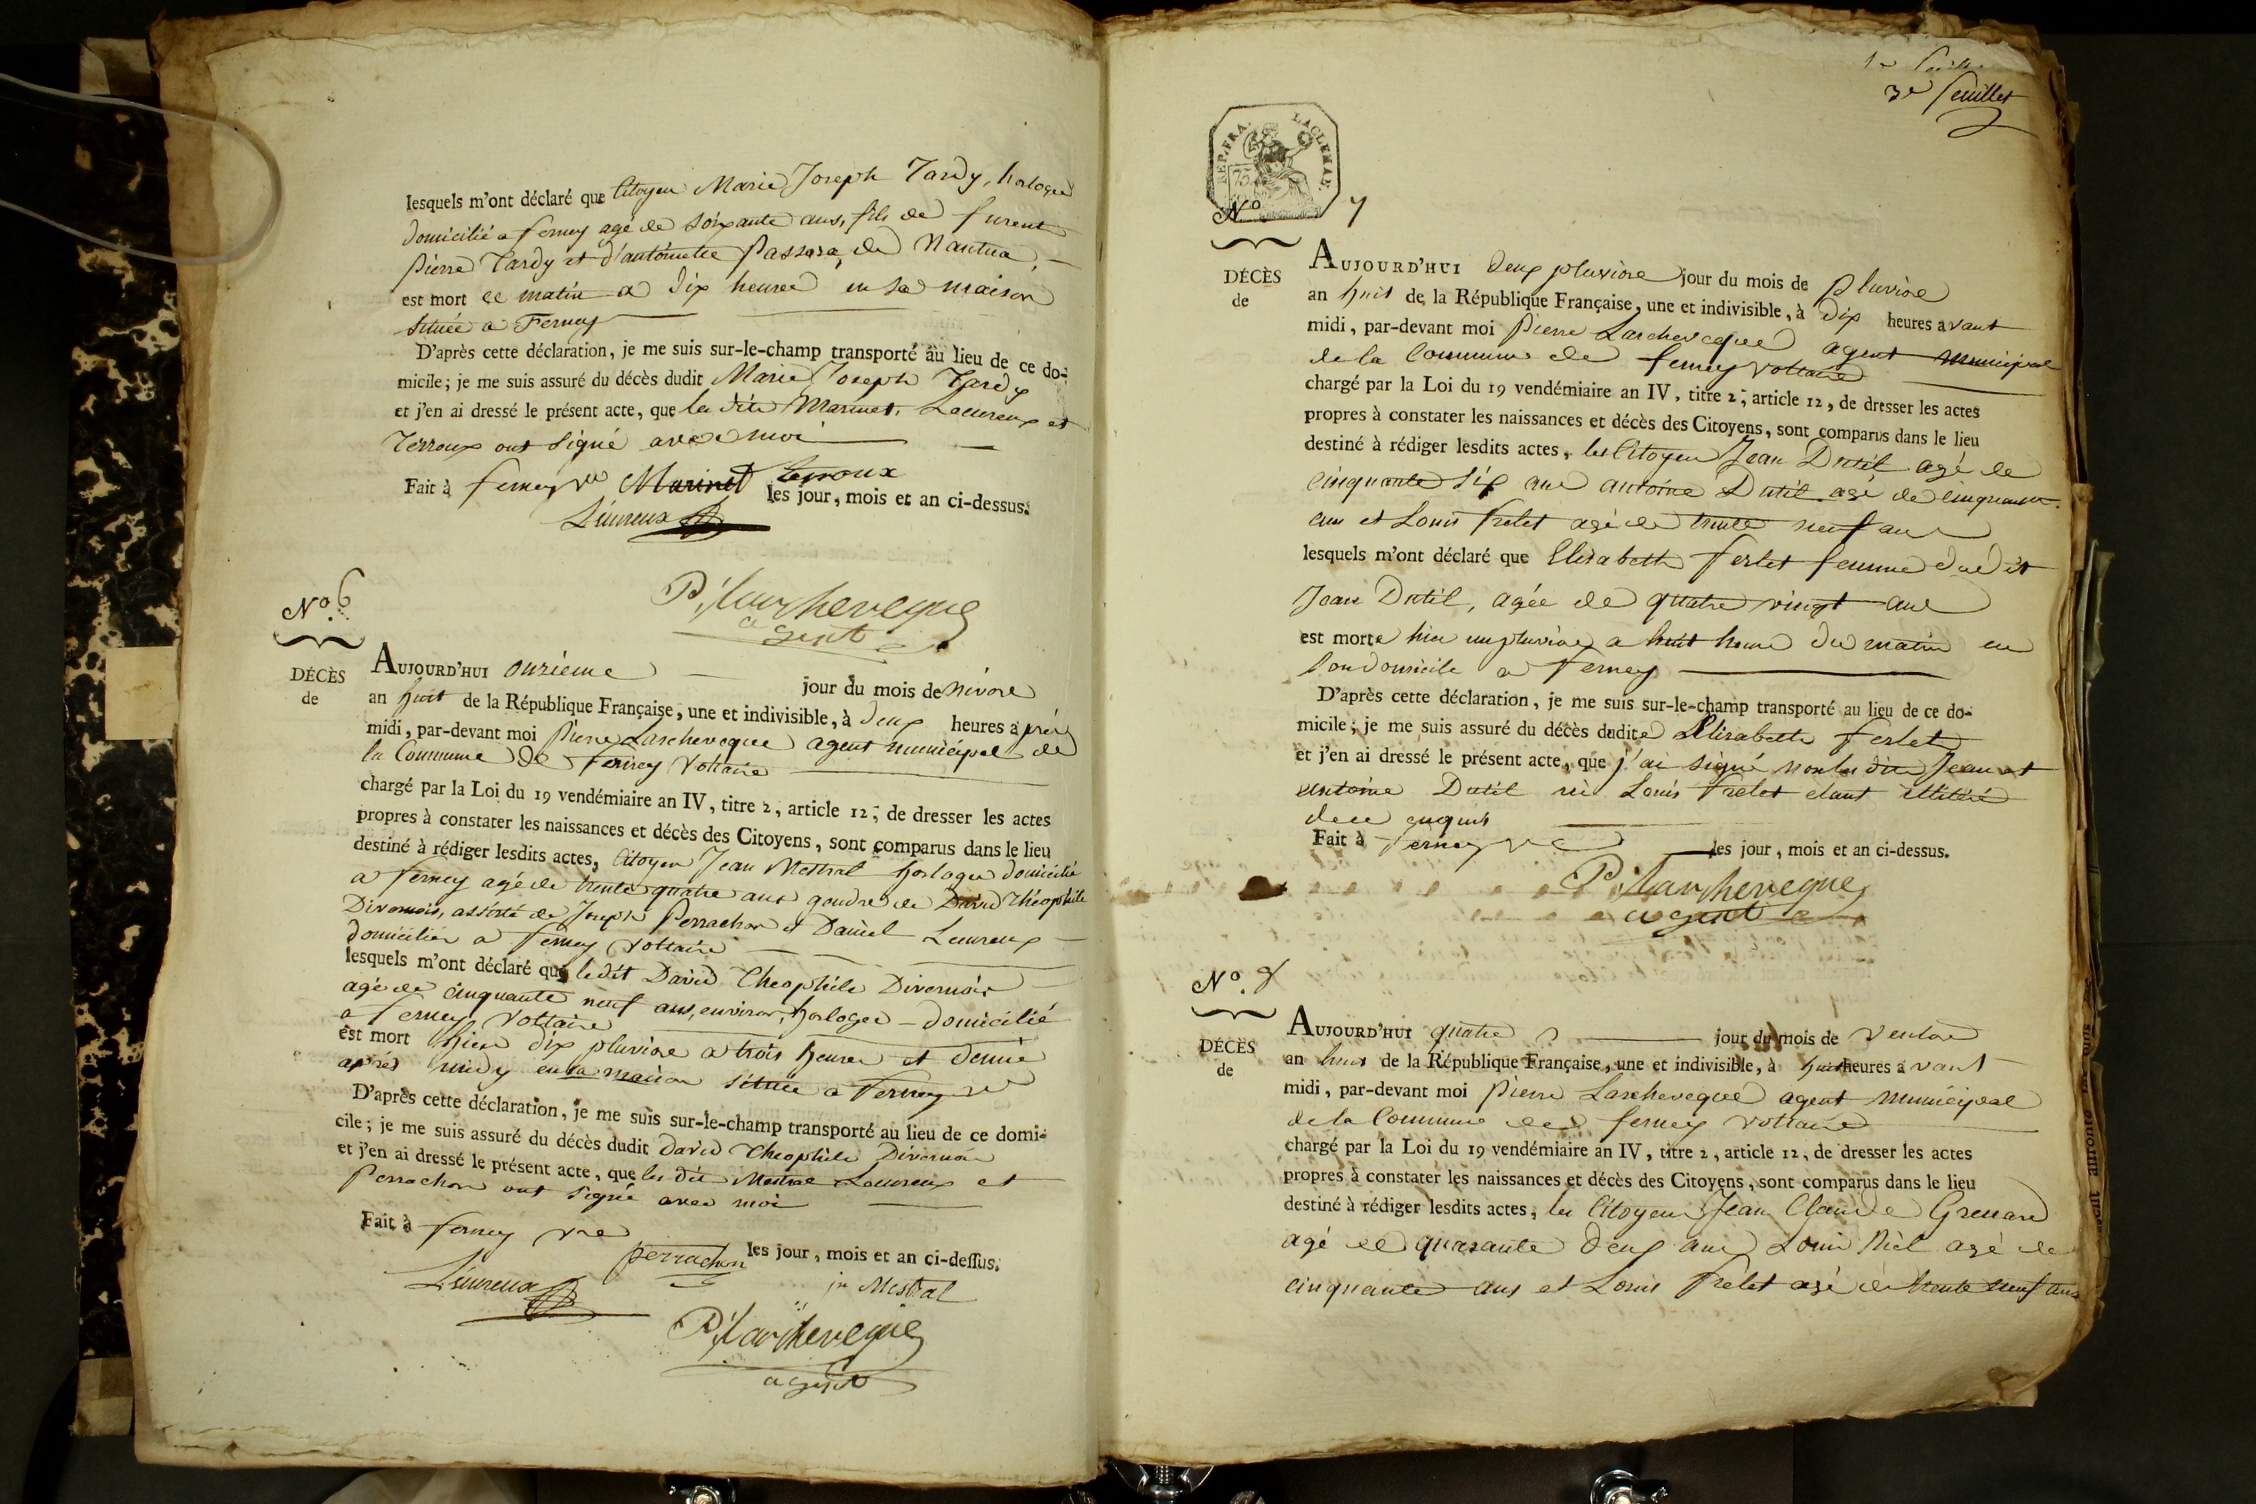 lesquels m'ont déclaré que Citoyen Marie Joseph Tardy, horloger
domicilié a ferney agé de soixante ans, fils de furent
Pierre Tardy et d'antoinette Passera, de Nantua,
est mort ce matin a dix heures en sa maison
située a Ferney
D'après cette déclaration, je me suis sur-le-champ transporté au lieu de ce do-
micile; je me suis assuré du décès dudit Marie Joseph Tardy
et j'en ai dressé le présent acte, que les dits Marinet, Leureux et
Terroux ont signé avec moi
Fait à ferney Vre Marinet Terroux les jour, mois et an ci-dessus.
Leureux
P. Larcheveque
agent
No. 6
DÉCÈS
de
AUJOURD'HUI onzieme jour du mois de nivose
an huit de la République Française, une et indivisible, à deux heures après
midi, par-devant moi Pierre Larcheveque agent municipal de
la Commune de ferney Voltaire
chargé par la Loi du 19 vendémiaire an IV, titre 2, article 12, de dresser les actes
propres à constater les naissances et décès des Citoyens, sont comparus dans le lieu
destiné à rédiger lesdits actes, Citoyen Jean Mestral horloger domicilié
a ferney agé de trente quatre ans gendre de David Théophile
Divernois, assisté de Joseph Perrachon et Daniel Leureux
domiciliés a ferney Voltaire
lesquels m'ont déclaré que ledit David Theophile Divernois
agé de cinquante neuf ans, environ, horloger domicilié
a ferney Voltaire
est mort hier dix pluviose a trois heures et demie
après midy en sa maison située a Ferney Vre
D'après cette déclaration, je me suis sur-le-champ transporté au lieu de ce domi-
cile; je me suis assuré du décès dudit David Theophile Divernois
et j'en ai dressé le présent acte, que les dits Mestral Leureux et
Perrachon ont signé avec moi
Fait à ferney Vre
perrachon les jour, mois et an ci-dessus.
Leureux jn Mestral
P. Larcheveque
agent
3e feuillet
REP. FRA.
75
No 7
DÉCÈS
de
AUJOURD'HUI deux pluviose jour du mois de pluviose
an huit de la République Française, une et indivisible, à dix heures avant
midi, par-devant moi Pierre Larcheveque agent municipal
de la Commune de ferney Voltaire
chargé par la Loi du 19 vendémiaire an IV, titre 2, article 12, de dresser les actes
propres à constater les naissances et décès des Citoyens, sont comparus dans le lieu
destiné à rédiger lesdits actes, les Citoyen Jean Dutil agé de
cinquante six ans antoine Dutil agé de cinquante
ans et Louis frelet agé de trente neuf ans
lesquels m'ont déclaré que Elisabeth ferlet femme dudit
Jean Dutil, agée de quatre vingt ans
est morte hier un pluviose a huit heures du matin en
son domicile a ferney
D'après cette déclaration, je me suis sur-le-champ transporté au lieu de ce do-
micile; je me suis assuré du décès dudite Elisabeth ferlet
et j'en ai dressé le présent acte, que j'ai signé non les dits Jean et
antoine Dutil ni Louis frelet etant illitéré
de ce enquis
Fait à Ferney Vre les jour, mois et an ci-dessus.
P. Larcheveque
agent
No. 8
DÉCÈS
de
AUJOURD'HUI quatre jour du mois de Ventose
an huit de la République Française, une et indivisible, à huit heures avant
midi, par-devant moi Pierre Larcheveque agent municipal
de la Commune de ferney Voltaire
chargé par la Loi du 19 vendémiaire an IV, titre 2, article 12, de dresser les actes
propres à constater les naissances et décès des Citoyens, sont comparus dans le lieu
destiné à rédiger lesdits actes, les Citoyen Jean Claude Grenard
agé de quarante deux ans Louis Niel agé de
cinquante ans et Louis frelet agé de trente neuf ans